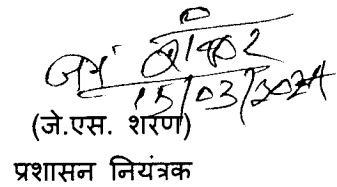 15/03/2024
(जे.एस. शरण)
प्रशासन नियंत्रक